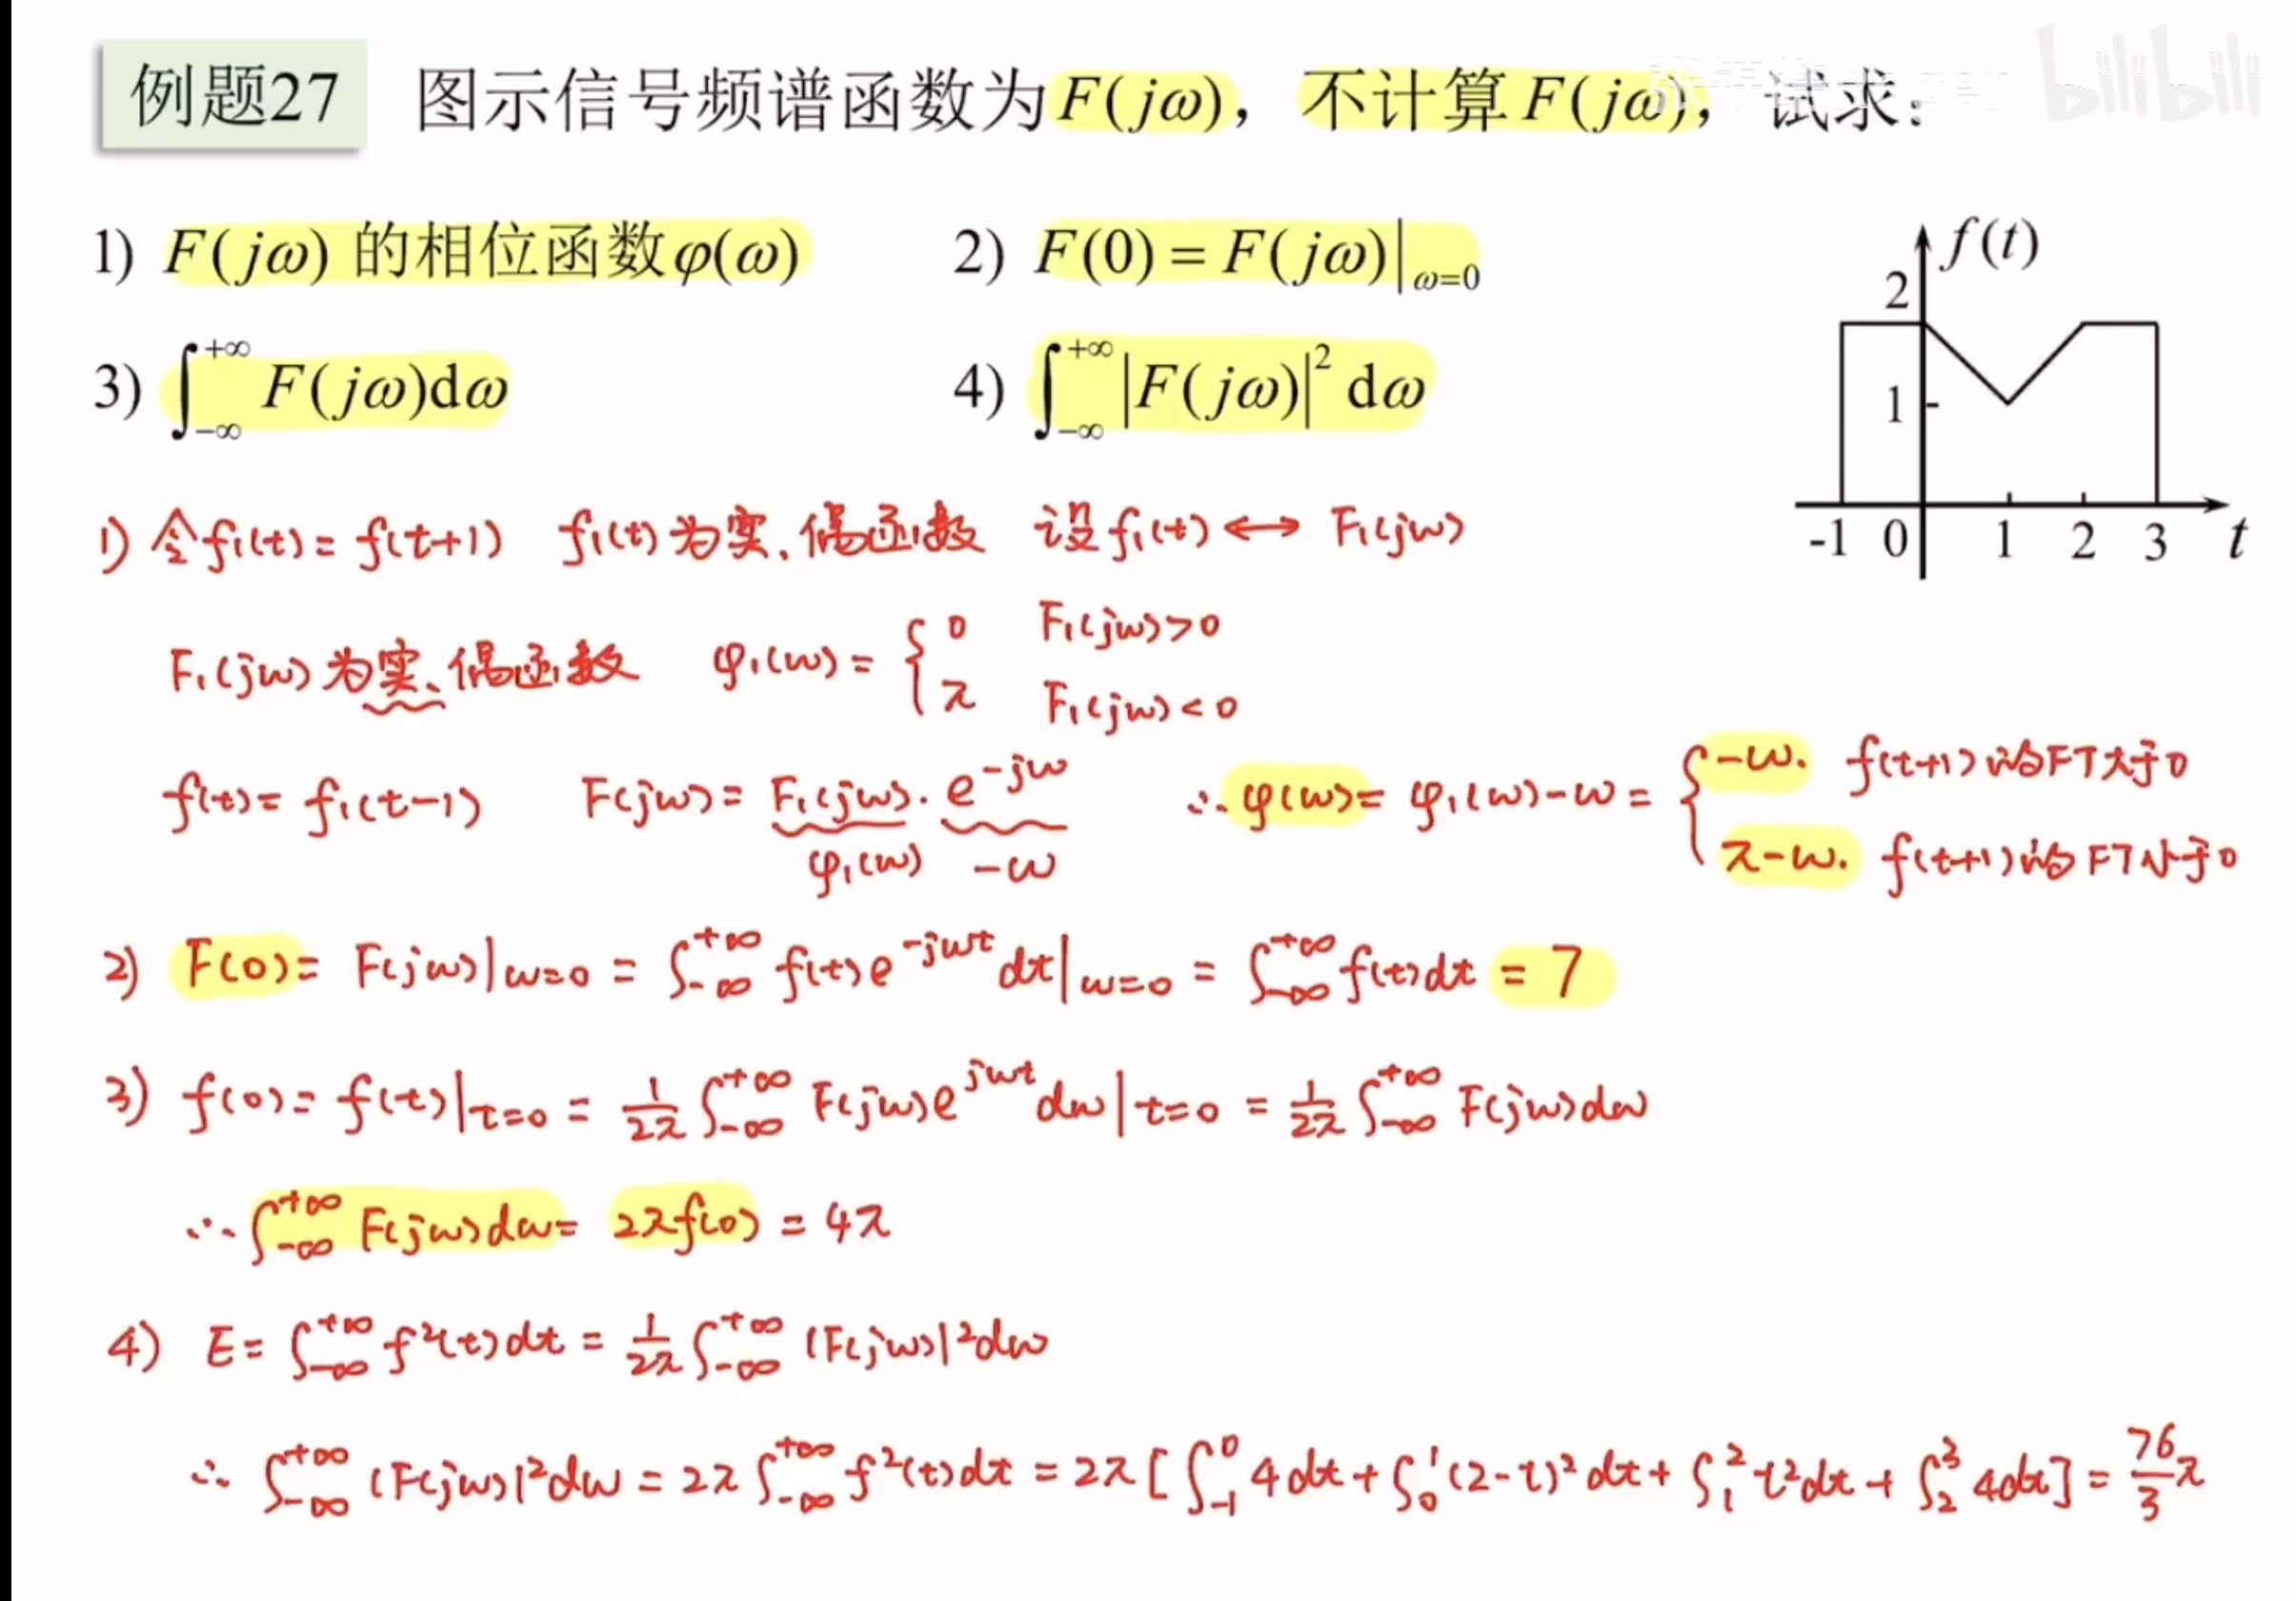 例题27 图示信号频谱函数为F(jω),不计算F(jω),试求:
bilibili
1) F(jω) 的相位函数φ(ω) 2) F(0) = F(jω)|ω=0
3) ∫_{-∞}^{+∞} F(jω)dω 4) ∫_{-∞}^{+∞} |F(jω)|² dω
f(t)
2
1
-1 0 1 2 3 t
1) 令f₁(t) = f(t+1) f₁(t)为实、偶函数 设f₁(t) ↔ F₁(jω)
F₁(jω)为实、偶函数 φ₁(ω) = { 0 F₁(jω)>0
π F₁(jω)<0
f(t) = f₁(t-1) F(jω) = F₁(jω)·e^{-jω} ∴ φ(ω) = φ₁(ω)-ω = { -ω. f(t+1)的FT大于0
φ₁(ω) -ω π-ω. f(t+1)的FT小于0
2) F(0) = F(jω)|ω=0 = ∫_{-∞}^{+∞} f(t)e^{-jωt}dt|ω=0 = ∫_{-∞}^{+∞} f(t)dt = 7
3) f(0) = f(t)|t=0 = 1/2π ∫_{-∞}^{+∞} F(jω)e^{jωt}dω|t=0 = 1/2π ∫_{-∞}^{+∞} F(jω)dω
∴ ∫_{-∞}^{+∞} F(jω)dω = 2πf(0) = 4π
4) E = ∫_{-∞}^{+∞} f²(t)dt = 1/2π ∫_{-∞}^{+∞} |F(jω)|²dω
∴ ∫_{-∞}^{+∞} |F(jω)|²dω = 2π ∫_{-∞}^{+∞} f²(t)dt = 2π [ ∫_{-1}^{0} 4dt + ∫_{0}^{1} (2-t)²dt + ∫_{1}^{2} t²dt + ∫_{2}^{3} 4dt ] = 76/3 π